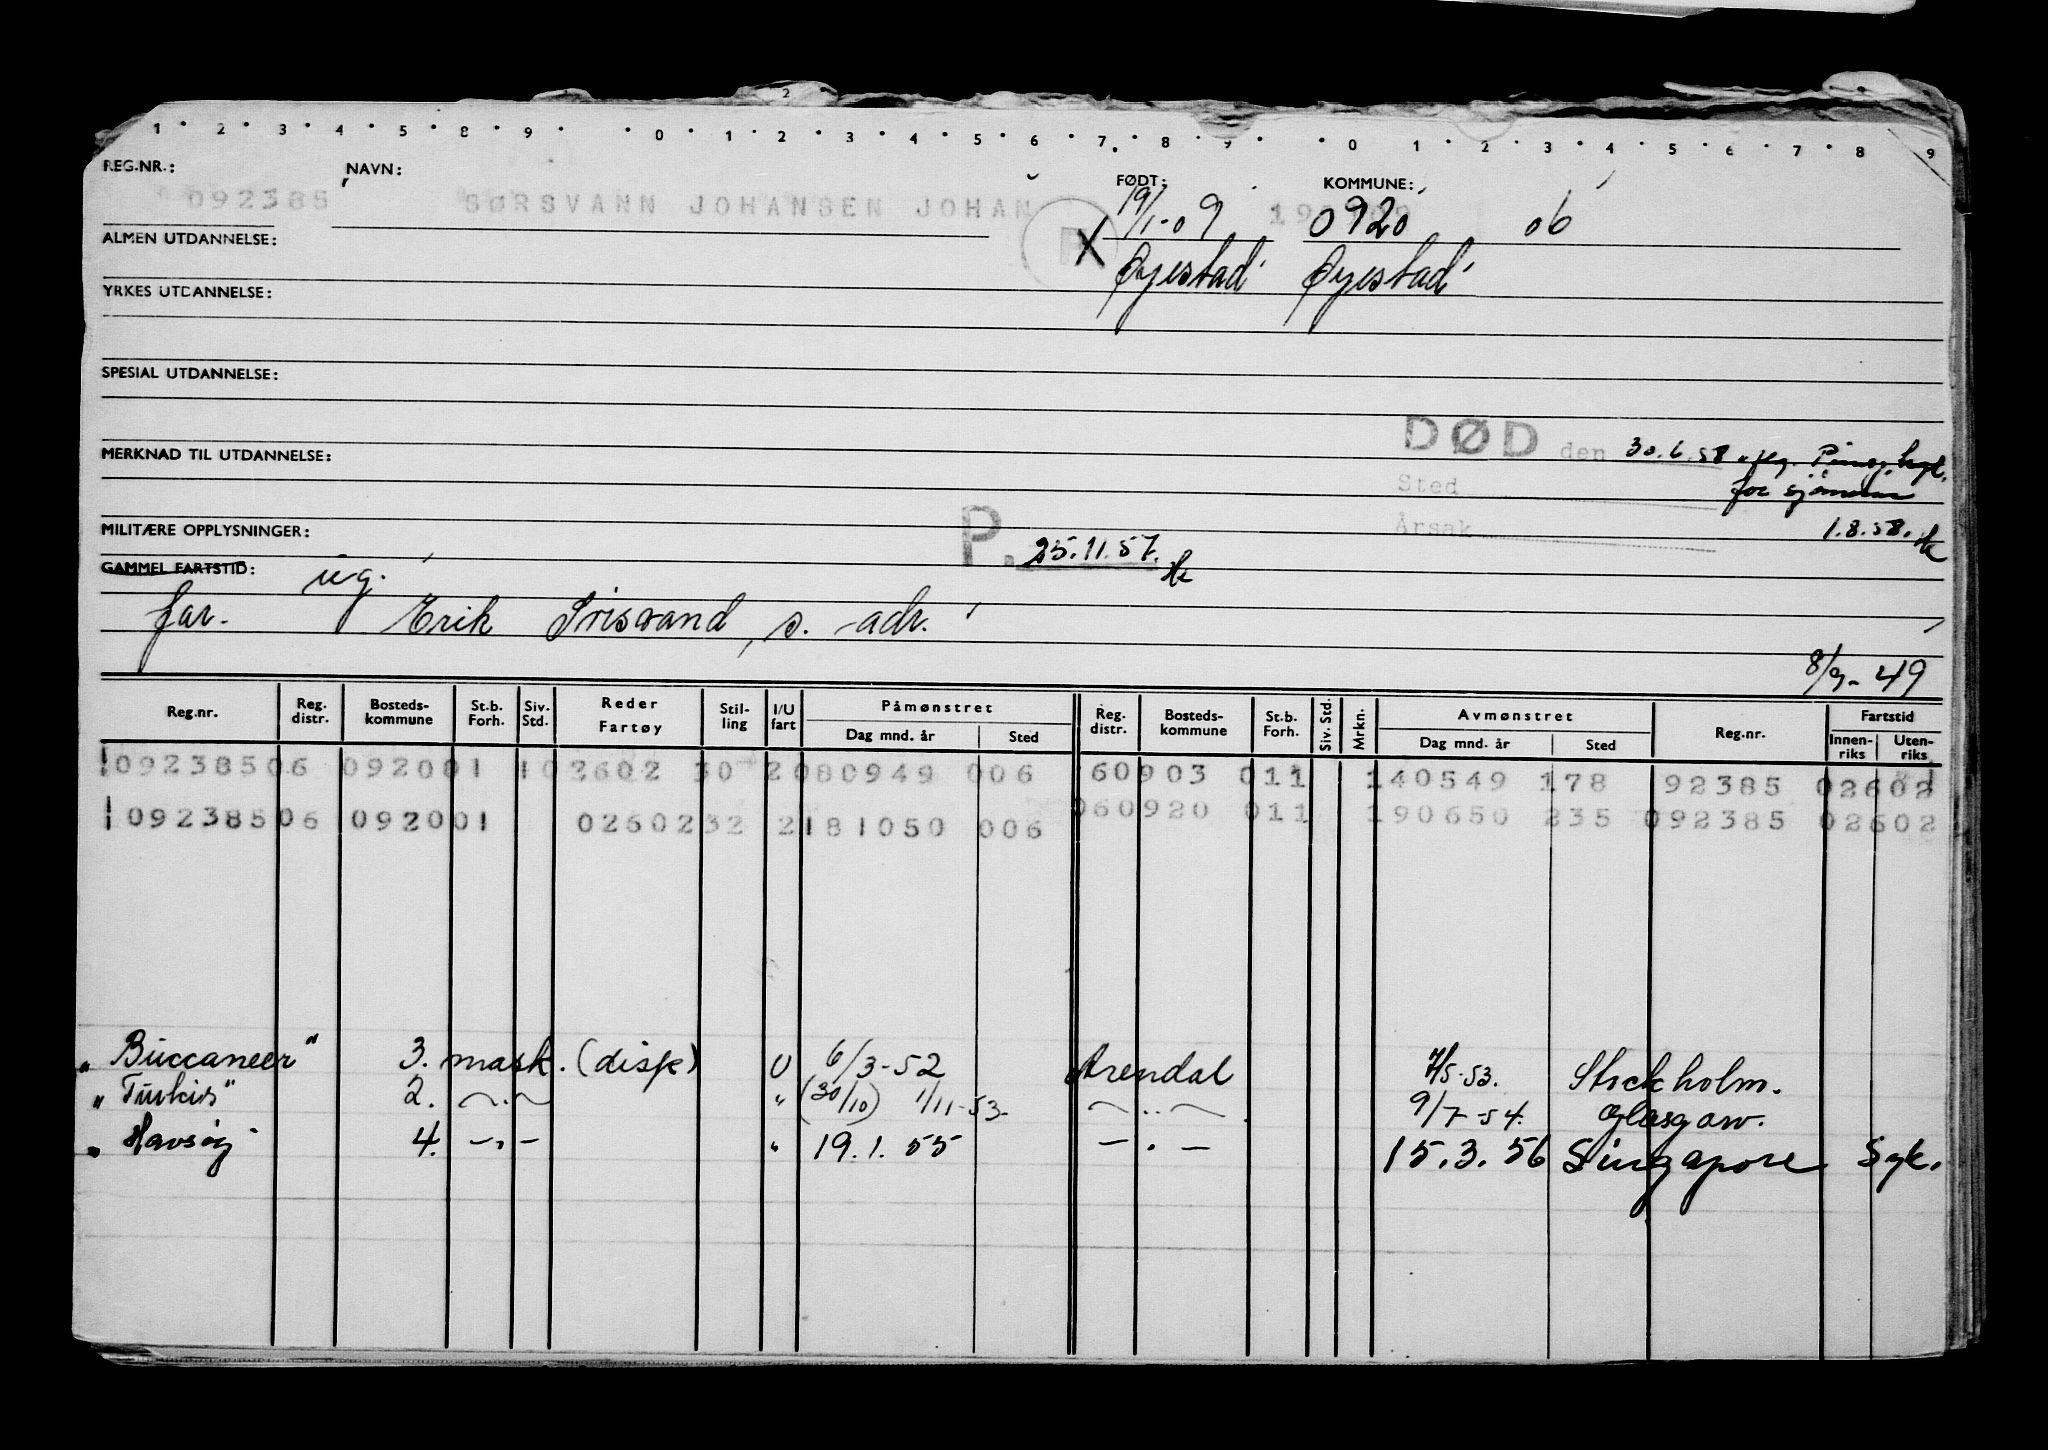 1 · 2 · 3 · 4 · 5 · 8 · 9 · · 0 · 1 · 2 · 3 · 4 · 5 · 6 · 7 · 8 · 9 · · 0 · 1 · 2 · 3 · 4 · 5 · 6 · 7 · 8 · 9
REG.NR.: NAVN: FØDT: KOMMUNE:
092385 SØRSVANN JOHANSEN JOHAN 19/1-09 0920 06
ALMEN UTDANNELSE: P X Øyestad Øyestad
YRKES UTDANNELSE:
SPESIAL UTDANNELSE:
DØD den 30.6.58
MERKNAD TIL UTDANNELSE:
Sted for sjømenn
MILITÆRE OPPLYSNINGER: Årsak 1.8.58.
P. 25.11.57.
GAMMEL FARTSTID: ug.
far. Erik Srisvand, s. adr.
8/9-49
Reg.nr. Reg. distr. Bosteds-kommune St.b. Forh. Siv. Std. Reder Fartøy Stil-ling I/U fart Påmønstret Dag mnd. år Sted Reg. distr. Bosteds-kommune St.b. Forh. Siv. Std. Mrkn. Avmønstret Dag mnd. år Sted Reg.nr. Fartstid Innen-riks Uten-riks
109238506 092001 10 2602 30 2080949 006 060903 011 140549 178 92385 02602
109238506 092001 02602 32 2181050 006 060920 011 190650 235 092385 02602
"Buccaneer" 3. mask. (disp) U 6/3-52 Arendal 7/5-53. Stockholm.
"Turkis" 2. —„— " (30/10) 1/11-53- —„— 9/7-54. Glasgow.
"Havsøy 4. —„— " 19.1.55 —„— 15.3.56 Singapore Syk.